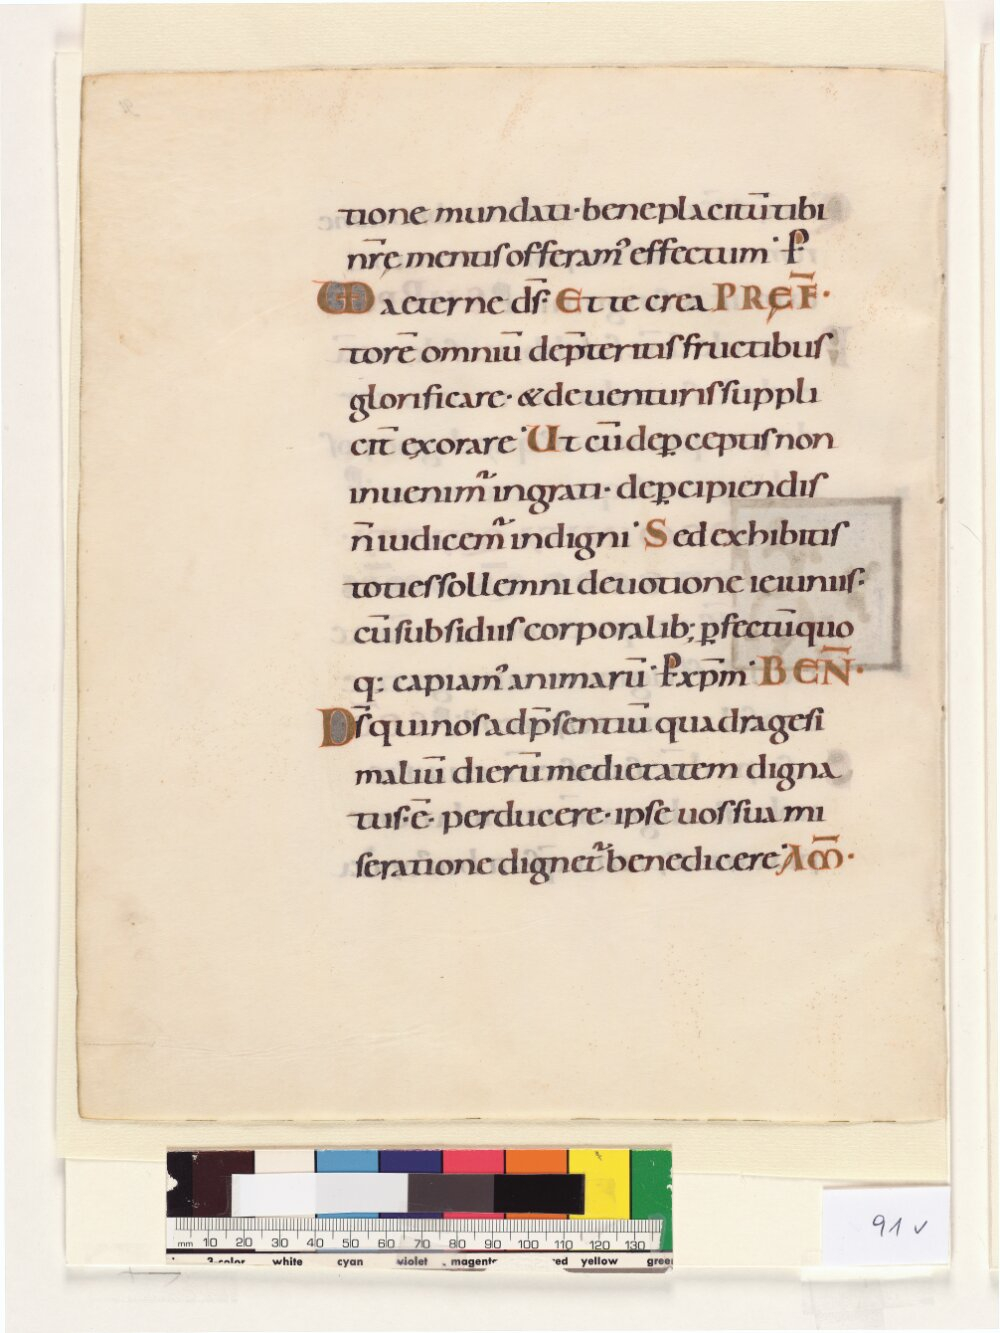 tione mundati·beneplacitū tibi
nr̄ę mentis offeram᾽ effectum· P̄
VD aeterne ds̄: Et te crea PRĘF̄·
torē omniū dep̄teritis fructibus
glorificare· & de uenturis suppli
cit̄ exorare· Ut cū deꝑceptis non
inuenim᷑ ingrati· deꝑcipiendis
n̄ iudicem᷑ indigni· Sed exhibitis
toties sollemni deuotione ieiuniis:
cū subsidiis corporalib; ꝑfectū quo
q: capiam᾽ animarū· P̄ xp̄m· BEN̄·
Ds̄ qui nos ad p̄sentiū quadragesi
maliū dierū medietatem digna
tus·ē· perducere· ipse uos sua mi
seratione dignet᷑ benedicere· AM̄·
91 v
mm 10 20 30 40 50 60 70 80 90 100 110 120 130
3-color white cyan violet magenta red yellow green